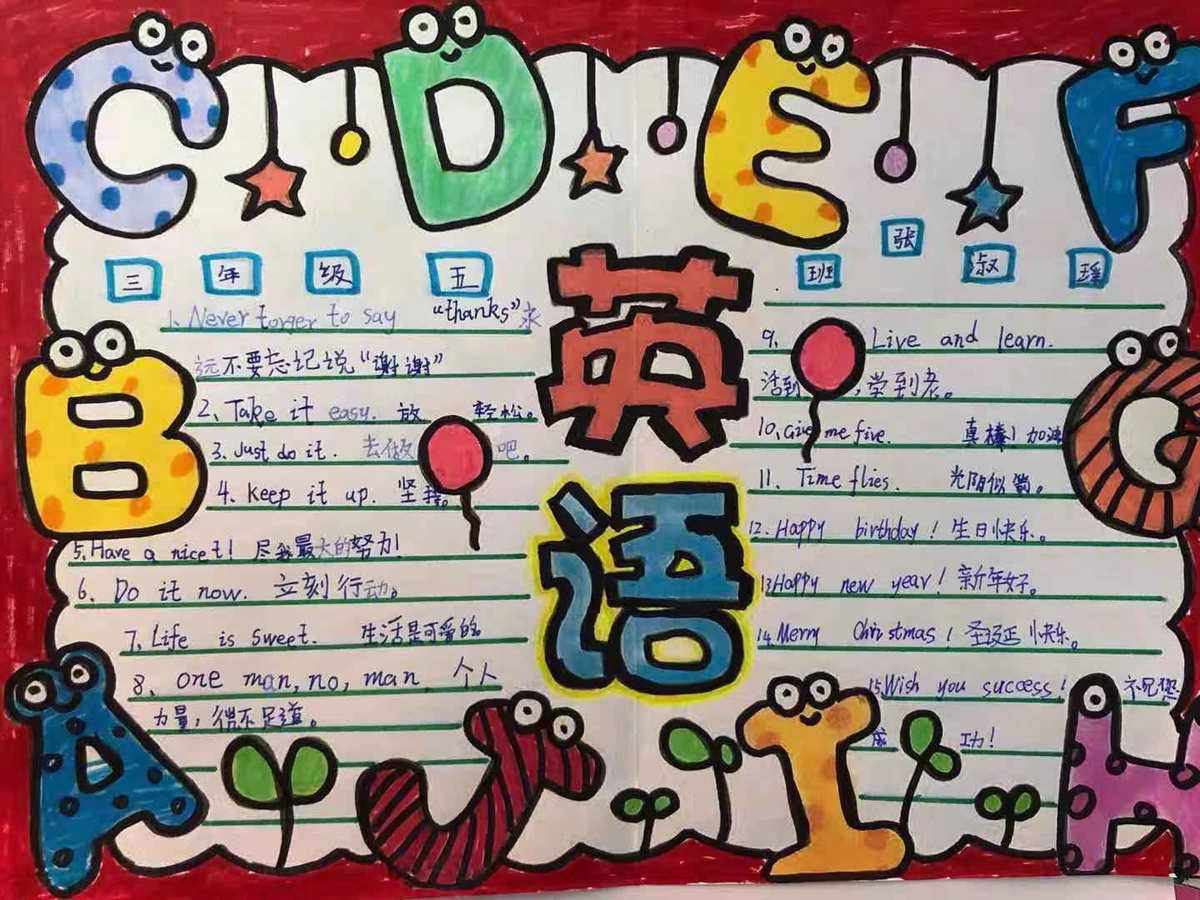 C D E F
三 年 级 五 班 张 淑 瑶
英语
1、Never forger to say "thanks"永
远不要忘记说"谢谢"
2、Take it easy. 放 轻松。
3、Just do it. 去做 吧。
4、Keep it up. 坚持。
5、Have a nicet! 尽我最大的努力
6、Do it now. 立刻行动。
7、Life is sweet. 生活是可爱的
8、one man, no, man, 个人
力量,微不足道。
9、Live and learn.
活到 ,学到老。
10、Give me five. 真棒!加油
11、Time flies. 光阴似箭。
12、Happy birthday! 生日快乐。
13、Happy new year! 新年好。
14、Merry Christmas! 圣诞快乐。
15、Wish you success! 祝您
成 功!
B
G
A J I H